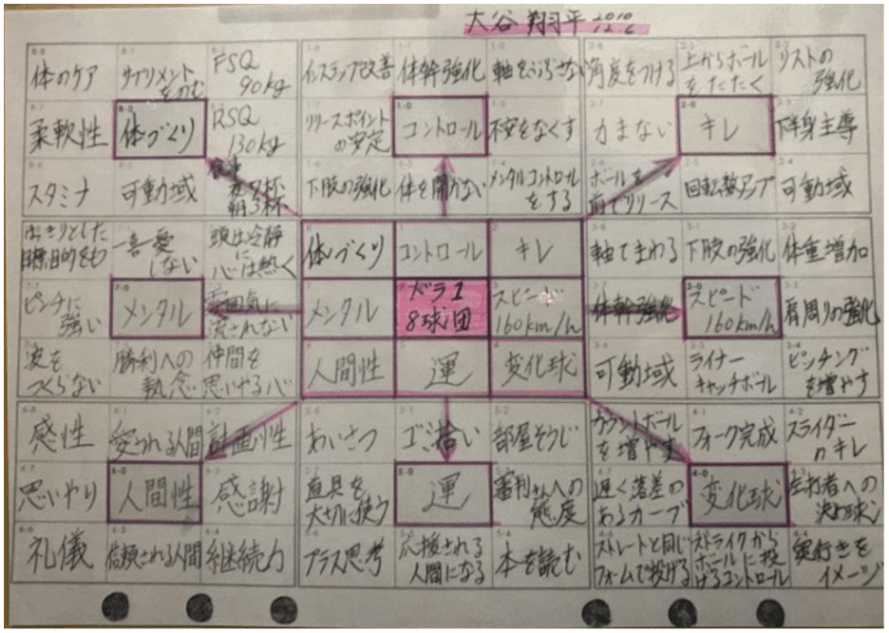 大谷 翔平 2010
12.6
体のケア
サプリメント
をのむ
FSQ
90kg
柔軟性
体づくり
RSQ
130kg
スタミナ
可動域
食事
夜7杯
朝3杯
インステップ改善
体幹強化
軸をぶらさない
リリースポイント
の安定
コントロール
不安をなくす
下肢の強化
体を開かない
メンタルコントロール
をする
角度をつける
上からボール
をたたく
リストの
強化
力まない
キレ
下半身主導
ボールを
前でリリース
回転数アップ
可動域
はっきりとした
目標,目的をもつ
一喜一憂
しない
頭は冷静に
心は熱く
ピンチに
強い
メンタル
雰囲気に
流されない
波を
つくらない
勝利への
執念
仲間を
思いやる心
体づくり
コントロール
キレ
メンタル
ドラ1
8球団
スピード
160km/h
人間性
運
変化球
軸でまわる
下肢の強化
体重増加
体幹強化
スピード
160km/h
肩周りの強化
可動域
ライナー
キャッチボール
ピッチング
を増やす
感性
愛される人間
計画性
思いやり
人間性
感謝
礼儀
信頼される人間
継続力
あいさつ
ゴミ拾い
部屋そうじ
道具を
大切に使う
運
審判さんへの
態度
プラス思考
応援される
人間になる
本を読む
カウントボール
を増やす
フォーク完成
スライダー
のキレ
遅く落差の
あるカーブ
変化球
左打者への
決め球
ストレートと同じ
フォームで投げる
ストライクから
ボールに投
げるコントロール
奥行きを
イメージ